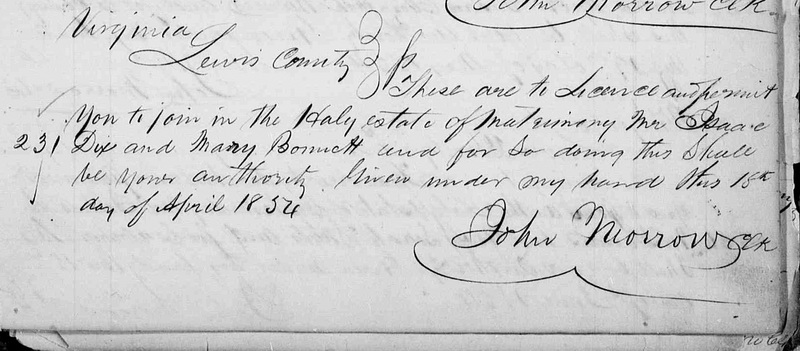 John Morrow Clk
Virginia
Lewis County } ss
These are to Licence and permit
you to join in the Holy estate of Matrimony Mr Isaac
231 Dix and Mary Bonnett and for so doing this Shall
be your authority Given under my hand this 18th
day of April 1854
John Morrow Clk